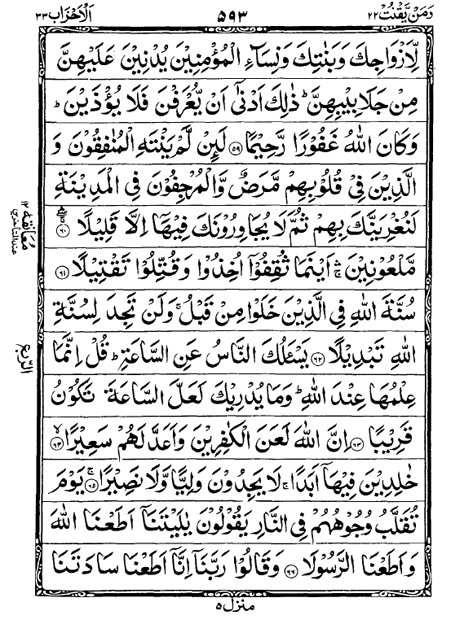 وَمَنْ يَّقْنُتْ ٢٢
٥٩٣
اَلْاَحْزَاب ٣٣
لِّاَزْوَاجِكَ وَبَنٰتِكَ وَنِسَآءِ الْمُؤْمِنِيْنَ يُدْنِيْنَ عَلَيْهِنَّ
مِنْ جَلَابِيْبِهِنَّ ؕ ذٰلِكَ اَدْنٰۤى اَنْ يُّعْرَفْنَ فَلَا يُؤْذَيْنَ ؕ
وَكَانَ اللّٰهُ غَفُوْرًا رَّحِيْمًا ﴿٥٩﴾ لَئِنْ لَّمْ يَنْتَهِ الْمُنٰفِقُوْنَ وَ
الَّذِيْنَ فِىْ قُلُوْبِهِمْ مَّرَضٌ وَّالْمُرْجِفُوْنَ فِى الْمَدِيْنَةِ
لَنُغْرِيَنَّكَ بِهِمْ ثُمَّ لَا يُجَاوِرُوْنَكَ فِيْهَاۤ اِلَّا قَلِيْلًا ﴿٦٠﴾
مَّلْعُوْنِيْنَ ۛۚ اَيْنَمَا ثُقِفُوْۤا اُخِذُوْا وَقُتِّلُوْا تَقْتِيْلًا ﴿٦١﴾
سُنَّةَ اللّٰهِ فِى الَّذِيْنَ خَلَوْا مِنْ قَبْلُ ۚ وَلَنْ تَجِدَ لِسُنَّةِ
اللّٰهِ تَبْدِيْلًا ﴿٦٢﴾ يَسْئَلُكَ النَّاسُ عَنِ السَّاعَةِ ؕ قُلْ اِنَّمَا
عِلْمُهَا عِنْدَ اللّٰهِ ؕ وَمَا يُدْرِيْكَ لَعَلَّ السَّاعَةَ تَكُوْنُ
قَرِيْبًا ﴿٦٣﴾ اِنَّ اللّٰهَ لَعَنَ الْكٰفِرِيْنَ وَاَعَدَّ لَهُمْ سَعِيْرًا ﴿٦٤﴾ ۙ
خٰلِدِيْنَ فِيْهَاۤ اَبَدًا ۚ لَا يَجِدُوْنَ وَلِيًّا وَّلَا نَصِيْرًا ﴿٦٥﴾ ۚ يَوْمَ
تُقَلَّبُ وُجُوْهُهُمْ فِى النَّارِ يَقُوْلُوْنَ يٰلَيْتَنَاۤ اَطَعْنَا اللّٰهَ
وَاَطَعْنَا الرَّسُوْلَا ﴿٦٦﴾ وَقَالُوْا رَبَّنَاۤ اِنَّاۤ اَطَعْنَا سَادَتَنَا
منزل ٥
معانقة ١٢
الربع